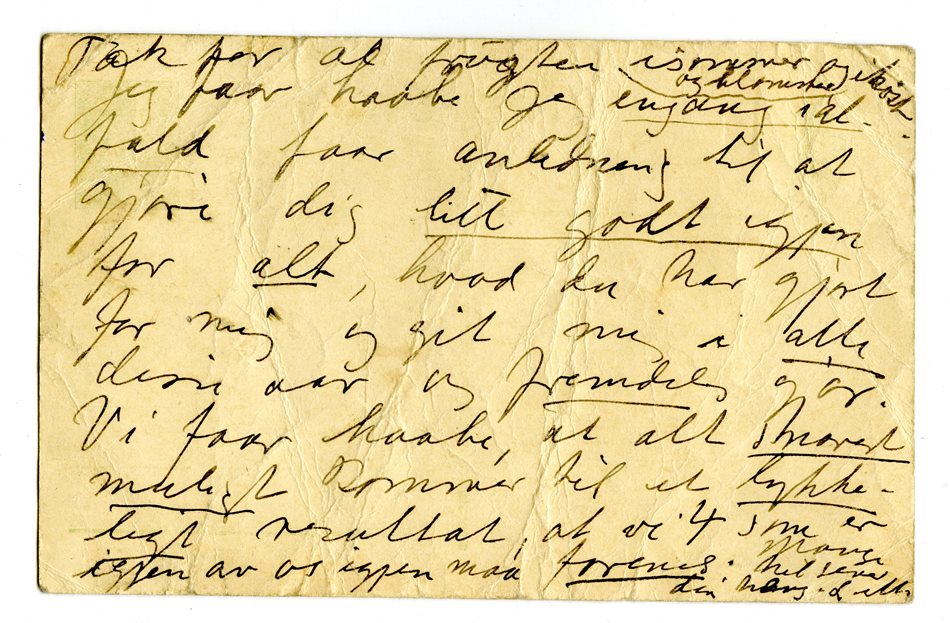 Tak for al frugten isommer og ihøst.
og blommer
Jeg faar haabe jeg engang ial-
fald faar anledning til at
gjøre dig litt godt igjen
for alt, hvad du har gjort
for mig og git mig i alle
disse aar og fremdeles gjør.
Vi faar haabe, at alt snarest
muligt kommer til et lykke-
ligt resultat, at vi 4 som er
igjen av os igjen maa forenes. Mange
hilsener
din